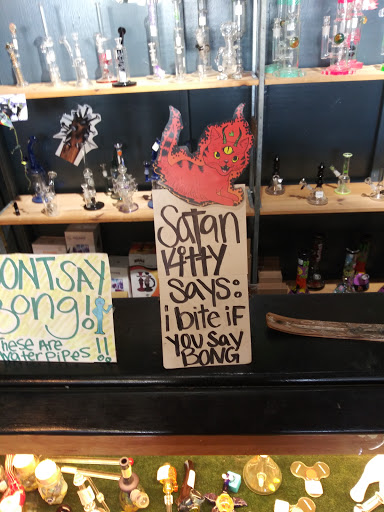 Satan
Kitty
says:
i bite if
you say
BONG
ONT SAY
Bong!
These Are
water pipes!!